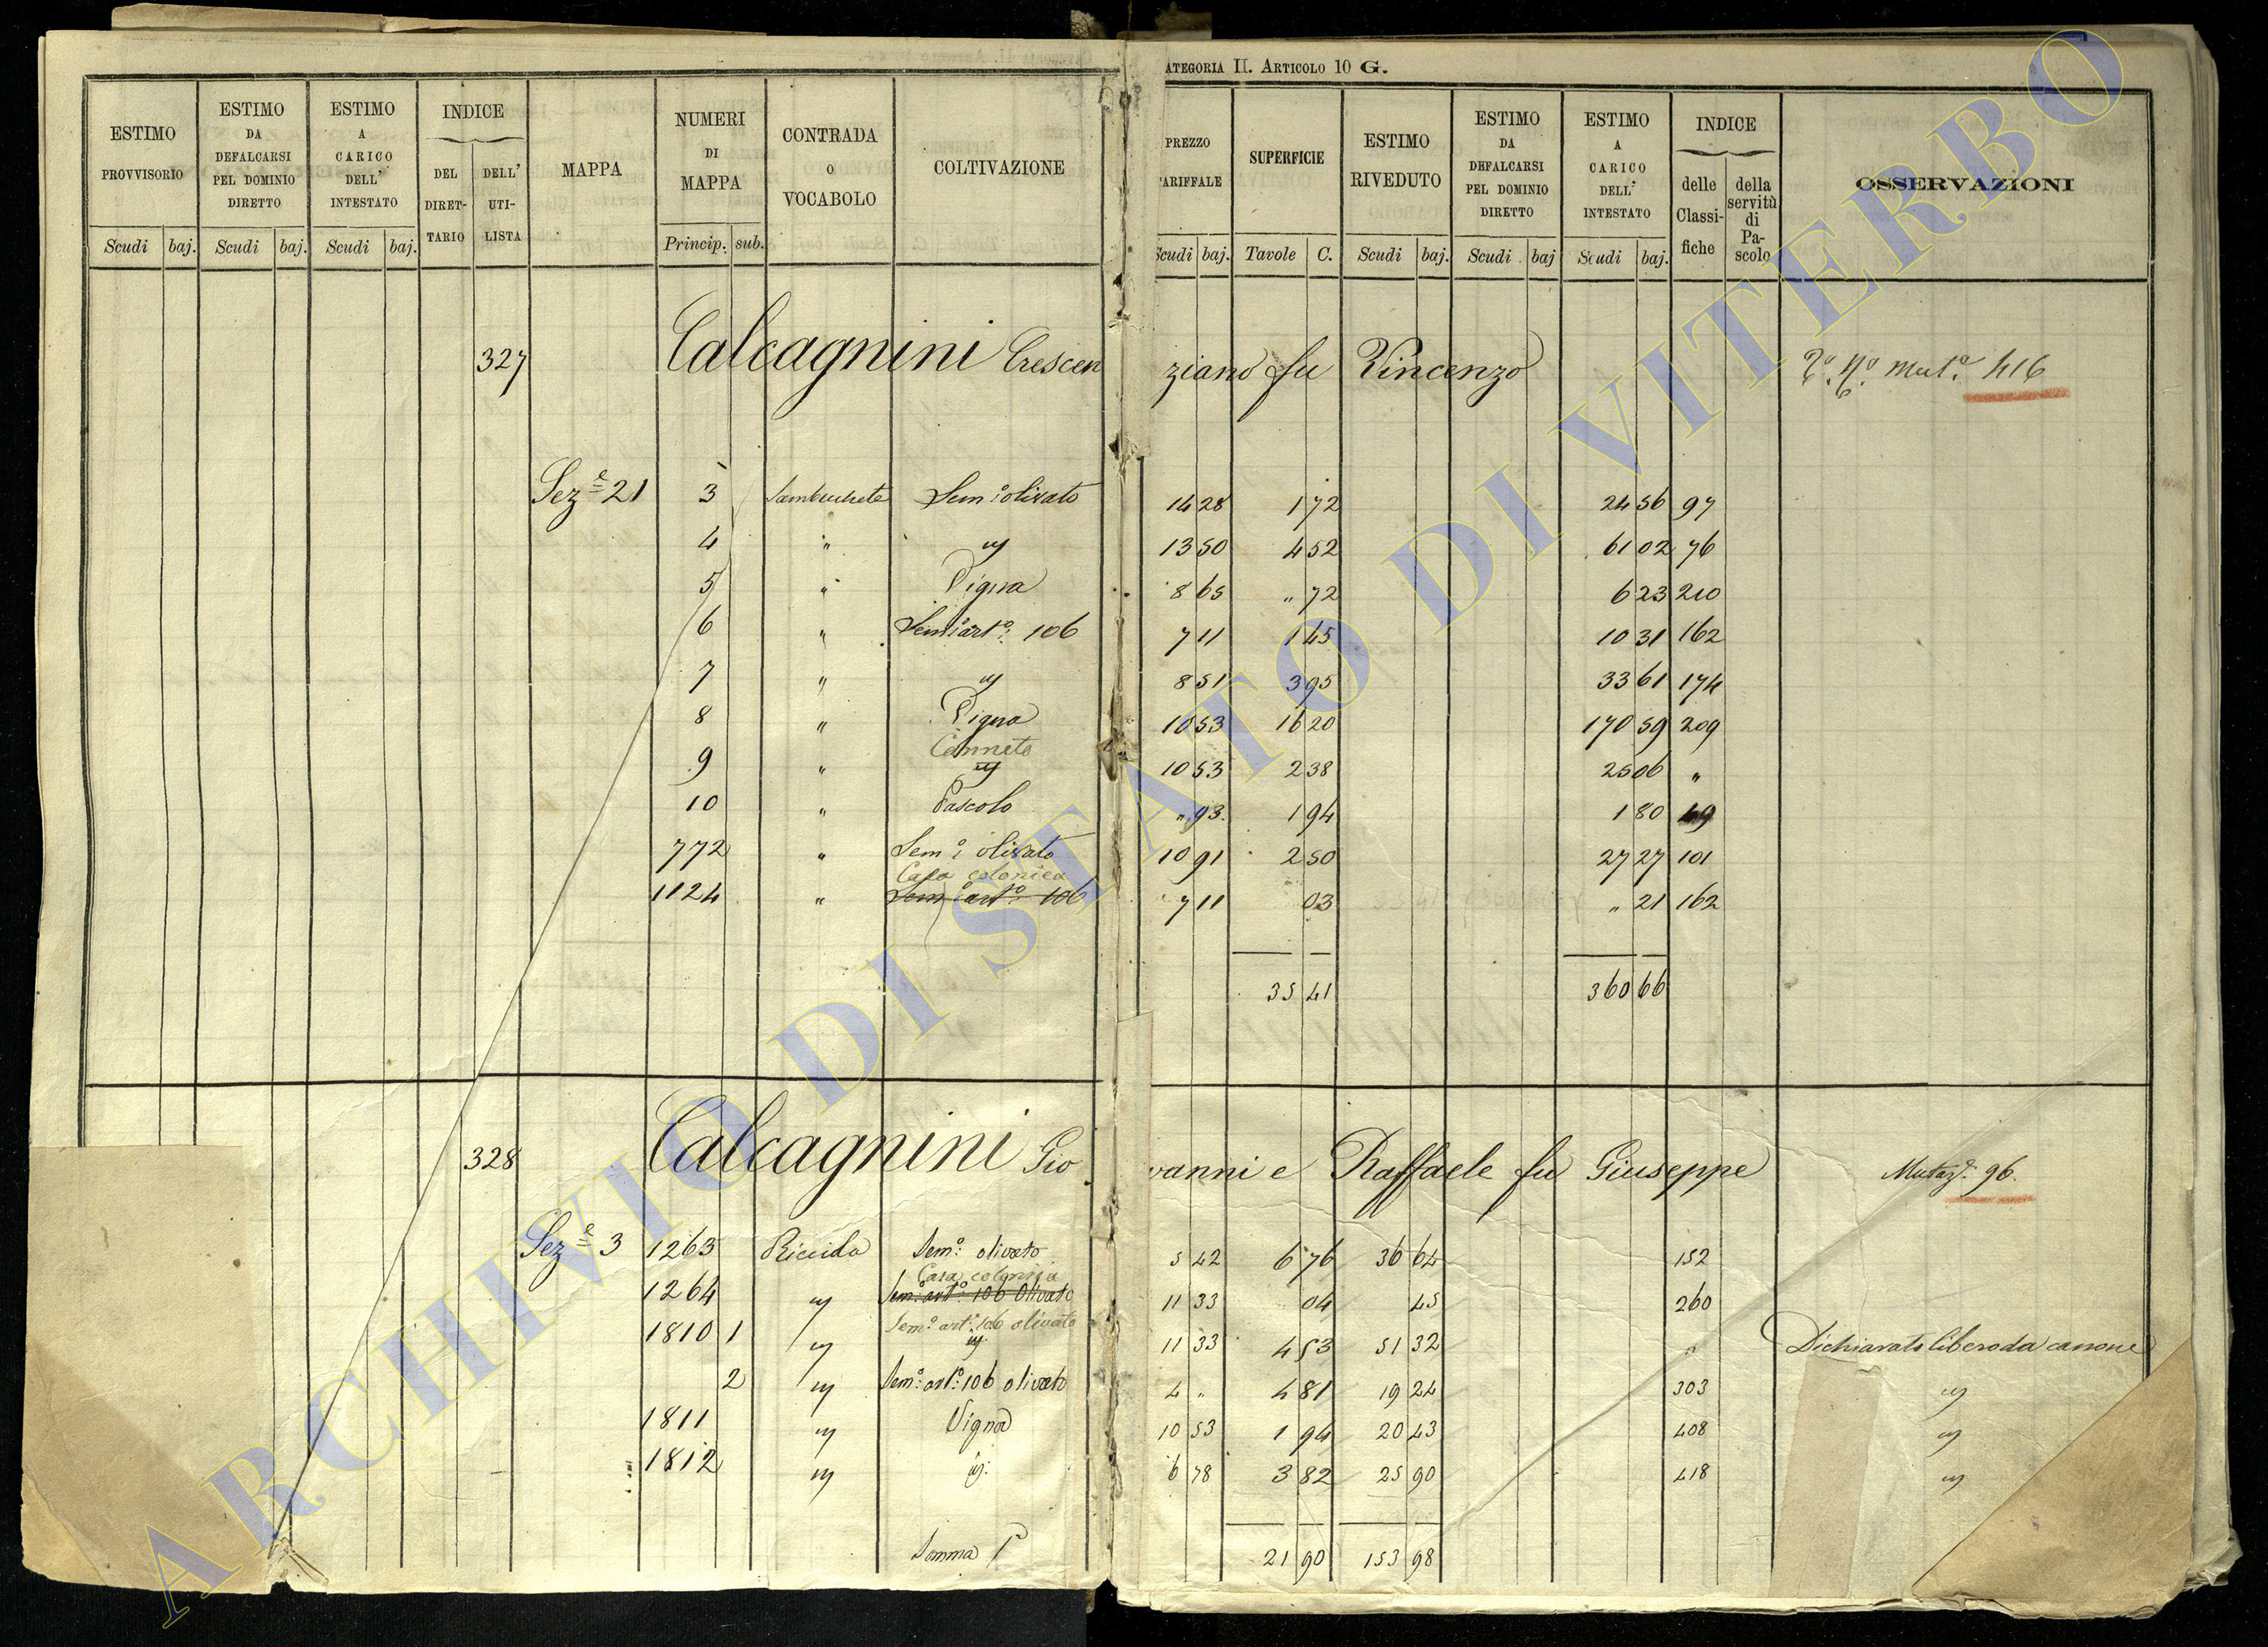 ATEGORIA II. ARTICOLO 10 G.
ESTIMO PROVVISORIO Scudi baj.
ESTIMO DA DEFALCARSI PEL DOMINIO DIRETTO Scudi baj.
ESTIMO A CARICO DELL' INTESTATO Scudi baj.
INDICE DEL DIRETTARIO DELL' UTILISTA
MAPPA
NUMERI DI MAPPA Princip. sub.
CONTRADA O VOCABOLO
COLTIVAZIONE
PREZZO ARIFFALE Scudi baj.
SUPERFICIE Tavole C.
ESTIMO RIVEDUTO Scudi baj.
ESTIMO DA DEFALCARSI PEL DOMINIO DIRETTO Scudi baj
ESTIMO A CARICO DELL' INTESTATO Scudi baj.
INDICE delle Classifiche della servitù di Pascolo
OSSERVAZIONI
327 Calcagnini Crescenziano fu Vincenzo Mut.ª 416
Sez.e 21 3 Sem.o olivato 14 28 1 72 24 56 97
4 " " 13 50 4 52 61 02 76
5 " Vigna 8 65 " 72 6 23 210
6 " Sem.o art.o 106 7 11 1 45 10 31 162
7 " " 8 51 3 95 33 61 174
8 " Vigna 10 53 16 20 170 59 209
Canneto
9 " " 10 53 2 38 25 06 "
10 " Pascolo " 93 1 94 1 80
772 " Sem.o olivato 10 91 2 50 27 27 101
Casa colonica
1124 " Sem.o art.o 106 7 11 03 " 21 162
35 41 360 66
328 Calcagnini Giovanni e Raffaele fu Giuseppe Mutaz.e 96.
Sez.e 3 1263 Riccida Sem.o olivato 5 42 6 76 36 64 152
Casa colonica
1264 " Sem.o art.o 106 Olivato 11 33 04 45 260
Sem.o art.o 106 olivato
1810 1 " " 11 33 4 53 51 32 " Dichiarato libero da canone
2 " Sem.o art.o 106 olivato 4 " 4 81 19 24 303 "
1811 " Vigna 10 53 1 94 20 43 408 "
1812 " " 6 78 3 82 25 90 418 "
Somma 21 90 153 98
ARCHIVIO DI STATO DI VITERBO